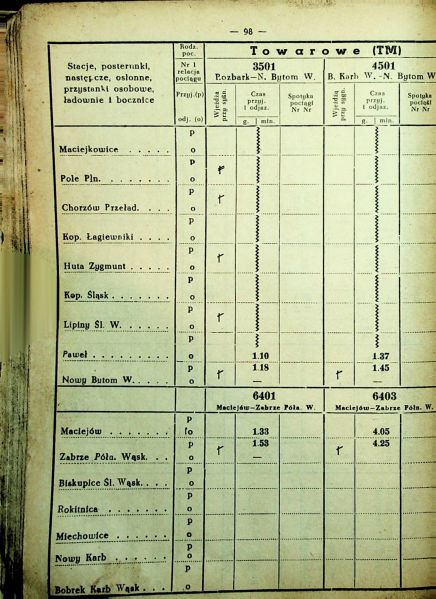 — 98 —
Stacje, posterunki,
następcze, osłonne,
przystanki osobowe,
ładownie i bocznice
Rodz.
poc.
Nr i
relacja
pociągu
Przyj.(p)
odj. (o)
Towarowe (TM)
3501
Rozbark—N. Bytom W.
4501
B. Karb W.-N. Bytom W
Wjeżdża
przy sygn.
Czas
przyj.
i odjaz.
g. | min.
Spotyka
pociągi
Nr Nr
Wjeżdża
przy sygn.
Czas
przyj.
i odjaz.
g. | min.
Spotyka
pociągi
Nr Nr
p
Maciejkowice . . . . . o
p
Pole Płn. . . . . . . . o
p
Chorzów Przeład. . . . o
p
Kop. Łagiewniki . . . . o
p
Huta Zygmunt . . . . . o
p
Kop. Śląsk . . . . . . . o
p
Lipiny Śl. W. . . . . . o
p
Paweł . . . . . . . . . o 1.10 1.37
p 1.18 1.45
Nowy Bytom W. . . . . o — —
6401 6403
Maciejów—Zabrze Półn. W. Maciejów—Zabrze Półn. W.
p
Maciejów . . . . . . . o 1.33 4.05
p 1.53 4.25
Zabrze Półn. Wąsk. . . o —
p
Biskupice Śl. Wąsk. . . o
p
Rokitnica . . . . . . o
p
Miechowice . . . . . . o
p
Nowy Karb . . . . . . o
p
Bobrek Karb Wąsk . . . o